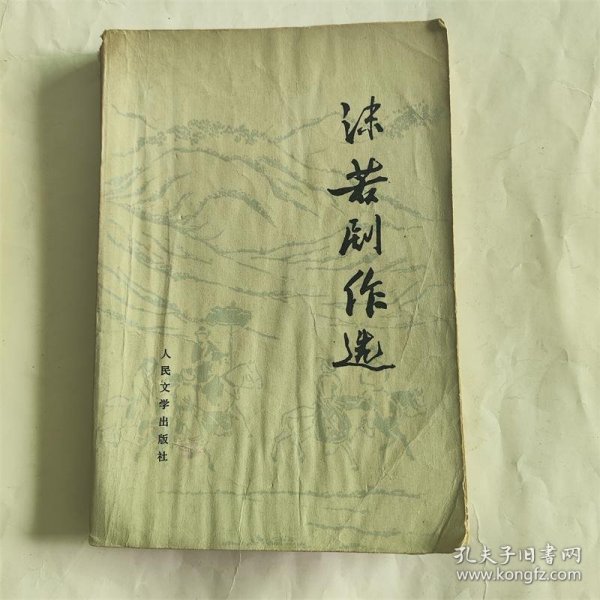 沫若剧作选
人民文学出版社
孔夫子旧书网
www.kongfz.com